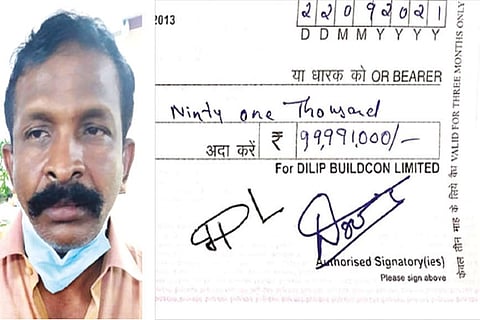 2013
2 2 0 9 2 0 2 1
D D M M Y Y Y Y
या धारक को OR BEARER
Ninty one Thousand
अदा करें ₹ 99,991,000/-
For DILIP BUILDCON LIMITED
Authorised Signatory(ies)
Please sign above
केवल तीन माह के लिये वैध VALID FOR THREE MONTHS ONLY